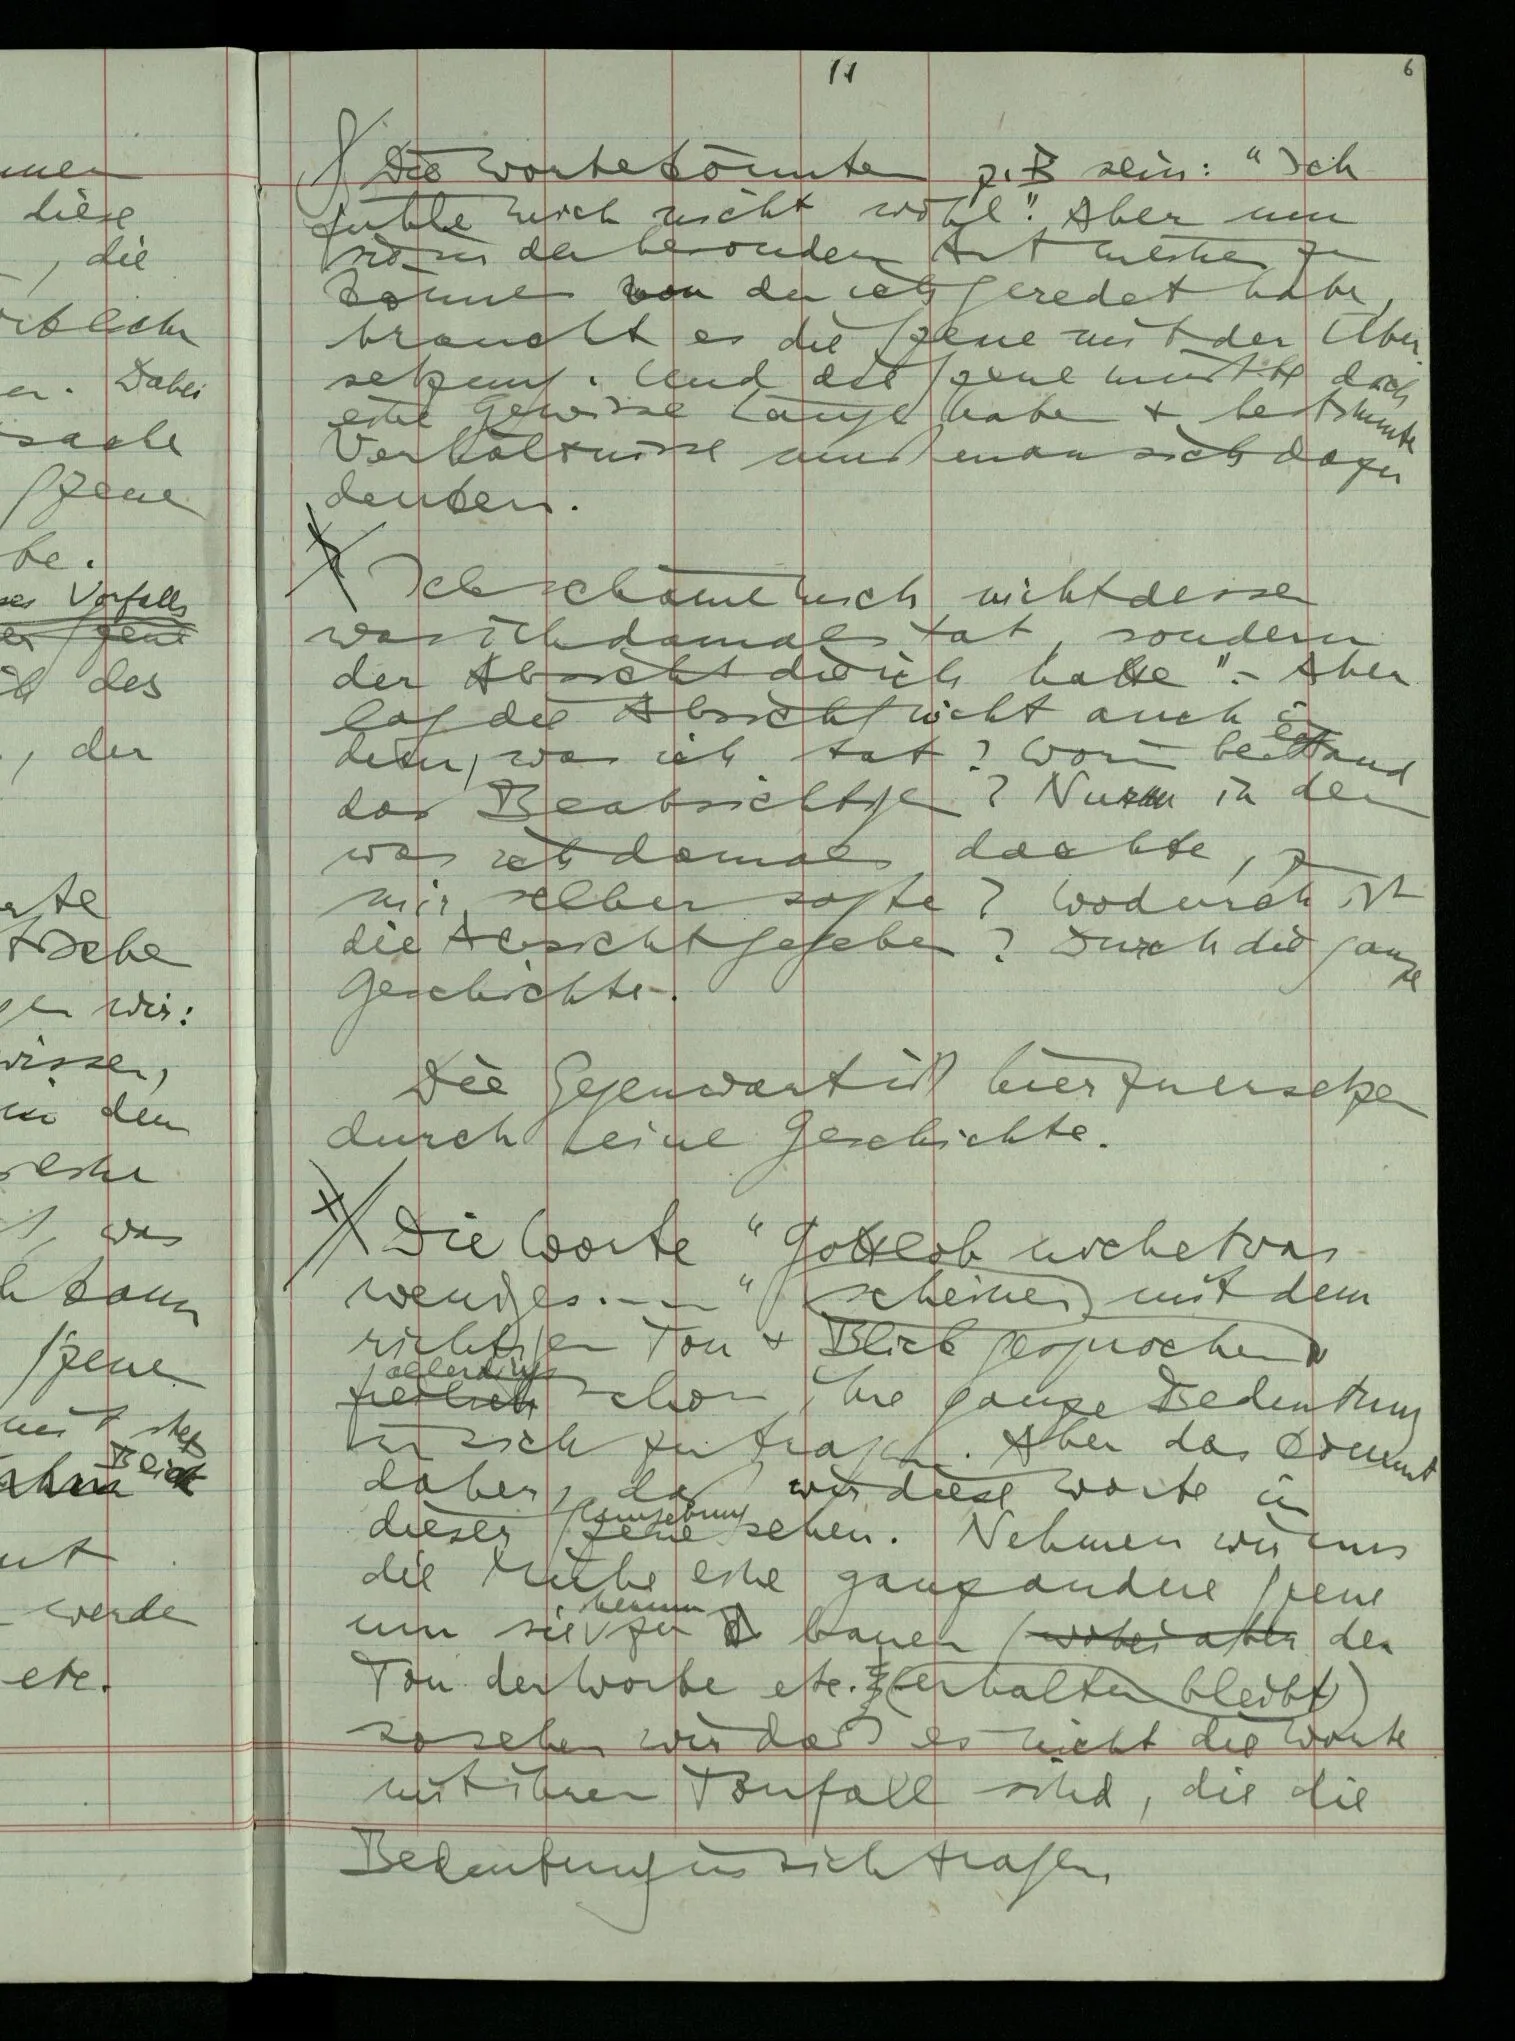 nen
diese
, die
örtliche
er. Dabei
sache
Szene
be.
ses Vorfalls
er Szene
des
, der
orte
wir:
wissen,
in dem
, was
h kann
Szene
Blick
werde
etc.
11
6
Die Worte könnten z.B sein: "Ich
fühle mich nicht wohl". Aber um
sie in der besondern Art meinen zu
können von der ich geredet habe,
braucht es die Szene mit der Über
setzung. Und die Szene mußte doch
eine gewisse Länge haben & bestimmte
Verhältnisse muß man sich dazu
denken.
Ich schäme mich nicht dessen
was ich damals tat, sondern
der Absicht die ich hatte". – Aber
lag die Absicht nicht auch in
dem, was ich tat? Worin bestand
das Beabsichtigen? Nur in dem
was ich damals dachte, zu
mir selber sagte? Wodurch ist
die Absicht gegeben? Durch die ganze
Geschichte.
Die Gegenwart ist hier zu ersetzen
durch eine Geschichte.
Die Worte "Gottlob noch etwas
weniges. – – –" scheinen, mit dem
richtigen Ton & Blick gesprochen,
allerdings
freilich schon ihre ganze Bedeutung
in sich zu tragen. Aber das kommt
daher, daß wir diese Worte in
Umgebung
dieser Szene sehen. Nehmen wir uns
die Mühe eine ganz andere Szene
herum
um sie zu bauen (wobei aber der
Ton der Worte etc. erhalten bleibt)
so sehen wir daß es nicht die Worte
mit ihrem Tonfall sind, die die
Bedeutung in sich tragen